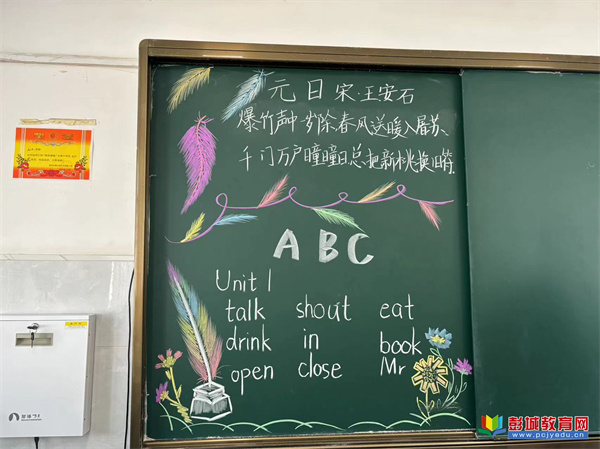 元日 宋·王安石
爆竹声中一岁除春风送暖入屠苏、
千门万户曈曈日总把新桃换旧符.
ABC
Unit 1
talk shout eat
drink in book
open close Mr
彭城教育网
www.pcjyedu.cn